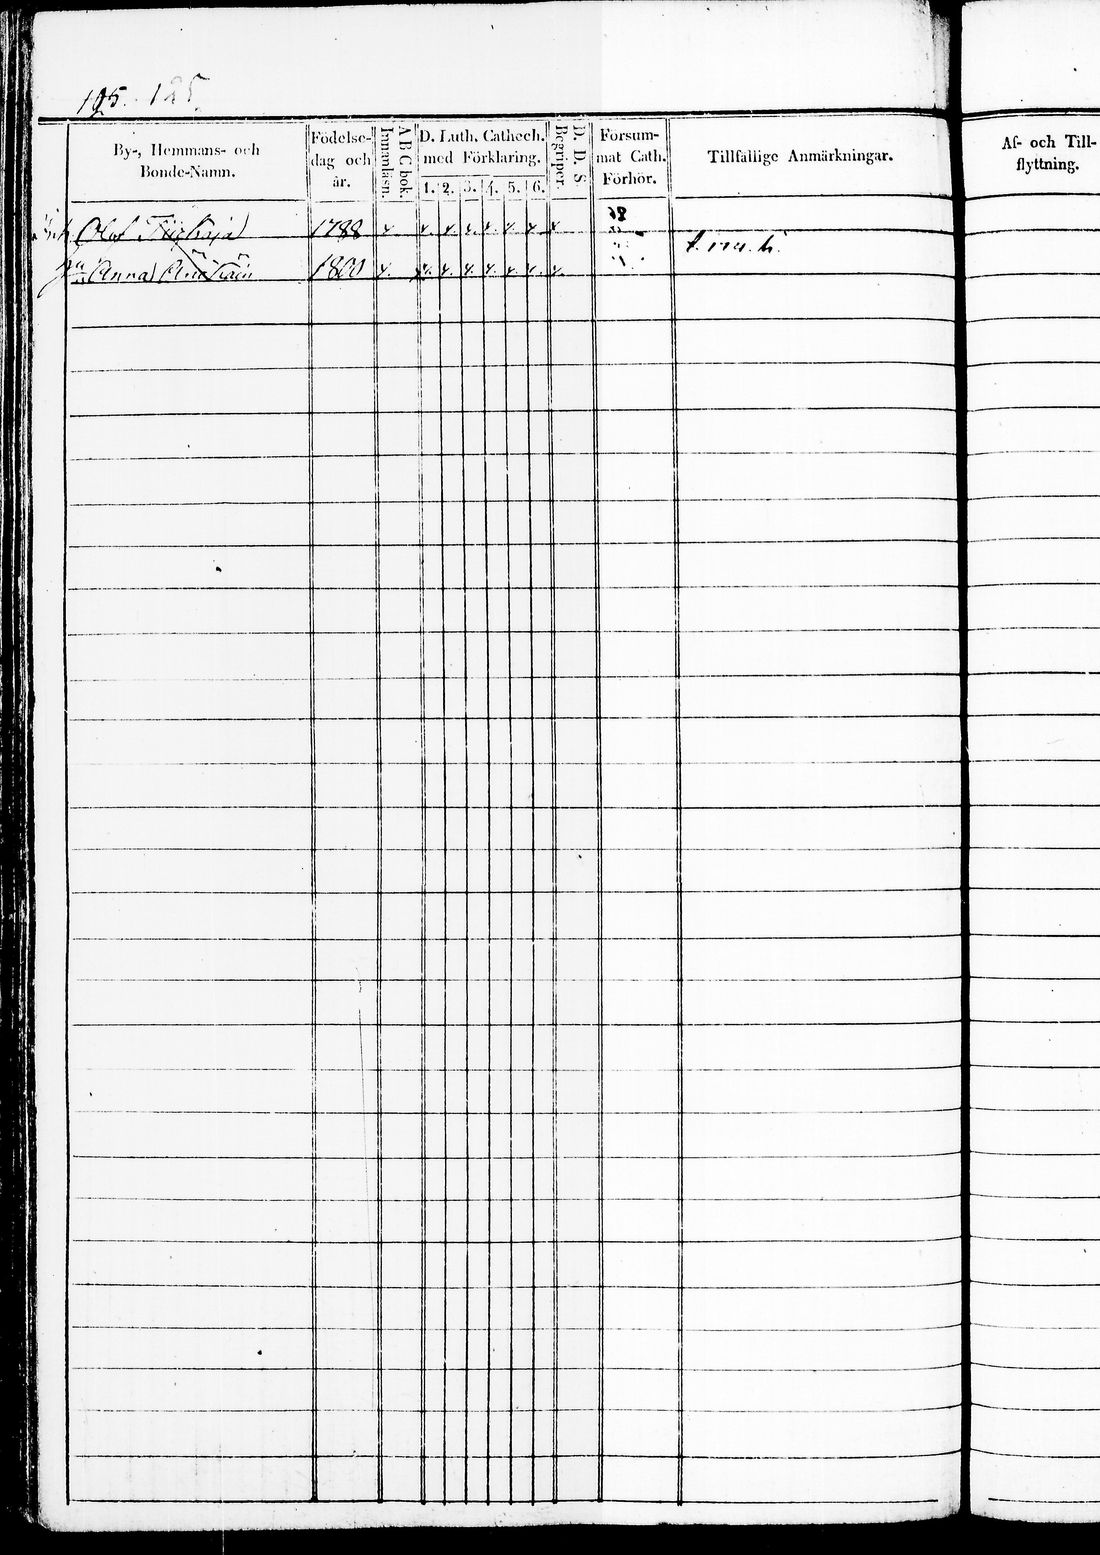 125. 125.
By-, Hemmans- och Bonde-Namn.
Födelse-dag och år.
Innanläsn.
A B C bok.
D. Luth. Cathech. med Förklaring.
1. 2. 3. 4. 5. 6.
Begriper.
D. D. S.
Försum-mat Cath. Förhör.
Tillfällige Anmärkningar.
Af- och Till-flyttning.
Olof 1788
Anna 1800